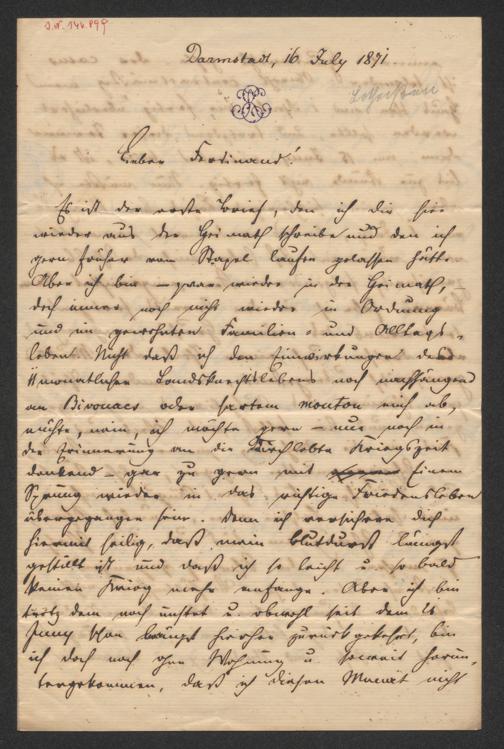 J.N. 146.899
Darmstadt, 16 July 1871
Lieber Ferdinand!
Es ist der erste Brief, den ich dir hier
wieder aus der Heimath schreibe und den ich
gern früher vom Stapel laufen gelassen hätte.
Aber ich bin – zwar wieder in der Heimath, –
doch immer noch nicht wieder in Ordnung
und im gewohnten Familien- und Alltags-
leben. Nicht daß ich den Einwirkungen des
11monatlichen Landsknechtslebens noch nachhängend
an Bivouacs oder hartem mouton mich ab,
nein, ich möchte gern – nur noch in
der Erinnerung an die durchlebte Kriegszeit
denkend – gar zu gern mit Einem
Sprung wieder in das richtige Friedensleben
übergegangen sein. Denn ich versichere dich
hiermit heilig, daß mein Blutdurst längst
gestillt ist und daß ich so leicht u. so bald
keinen Krieg mehr anfange. Aber ich bin
trotz dem noch unstet u. obwohl seit dem
Juny schon längst hierher zurückgekehrt, bin
ich doch noch ohne Wohnung u. soweit herun-
tergekommen, daß ich diesen Monat nicht